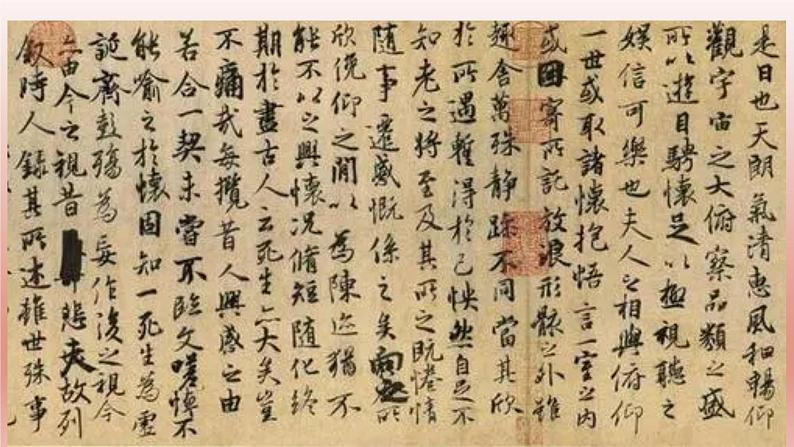 是日也天朗氣清惠風和暢仰
觀宇宙之大俯察品類之盛
所以遊目騁懷足以極視聽之
娛信可樂也夫人之相與俯仰
一世或取諸懷抱悟言一室之內
或因寄所託放浪形骸之外雖
趣舍萬殊靜躁不同當其欣
於所遇暫得於己怏然自足不
知老之將至及其所之既惓情
隨事遷感慨係之矣向之所
欣俛仰之閒以為陳迹猶不
能不以之興懷況脩短隨化終
期於盡古人云死生亦大矣豈
不痛哉每攬昔人興感之由
若合一契未嘗不臨文嗟悼不
能喻之於懷固知一死生為虛
誕齊彭殤為妄作後之視今
亦由今之視昔悲夫故列
叙時人錄其所述雖世殊事